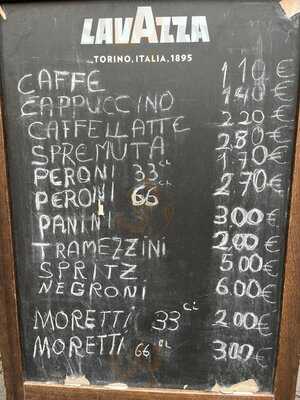 LAVAZZA
TORINO, ITALIA, 1895
CAFFE 110€
CAPPUCCINO 140€
CAFFELLATTE 220€
SPREMUTA 280€
PERONI 33 CL 170€
PERONI 66 CL 270€
PANINI 300€
TRAMEZZINI 200€
SPRITZ 500€
NEGRONI 600€
MORETTI 33 CL 200€
MORETTI 66 CL 300€